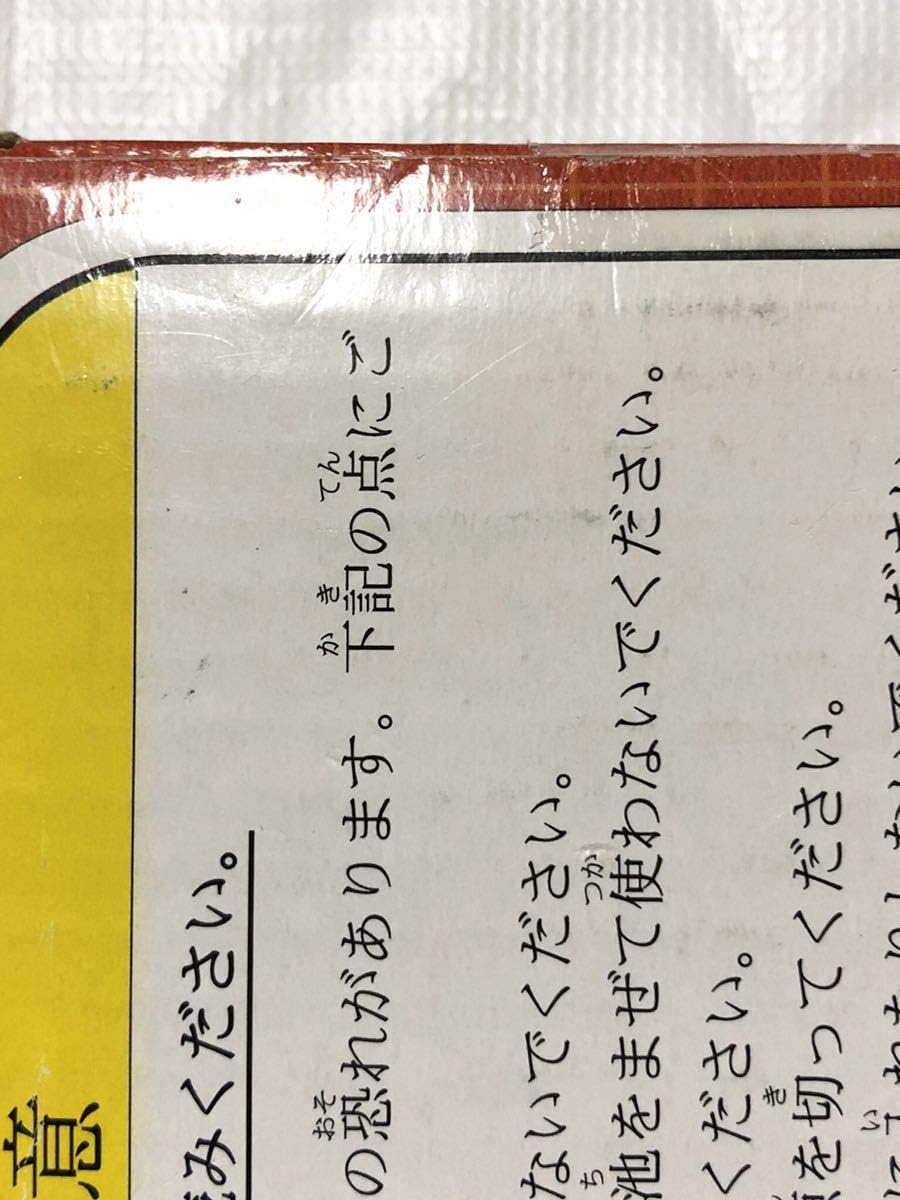 意
みください。
の恐れがあります。下記の点にご
おそ かき てん
ないでください。
池をまぜて使わないでください。
ち つか
ください。
を切ってください。
き
い